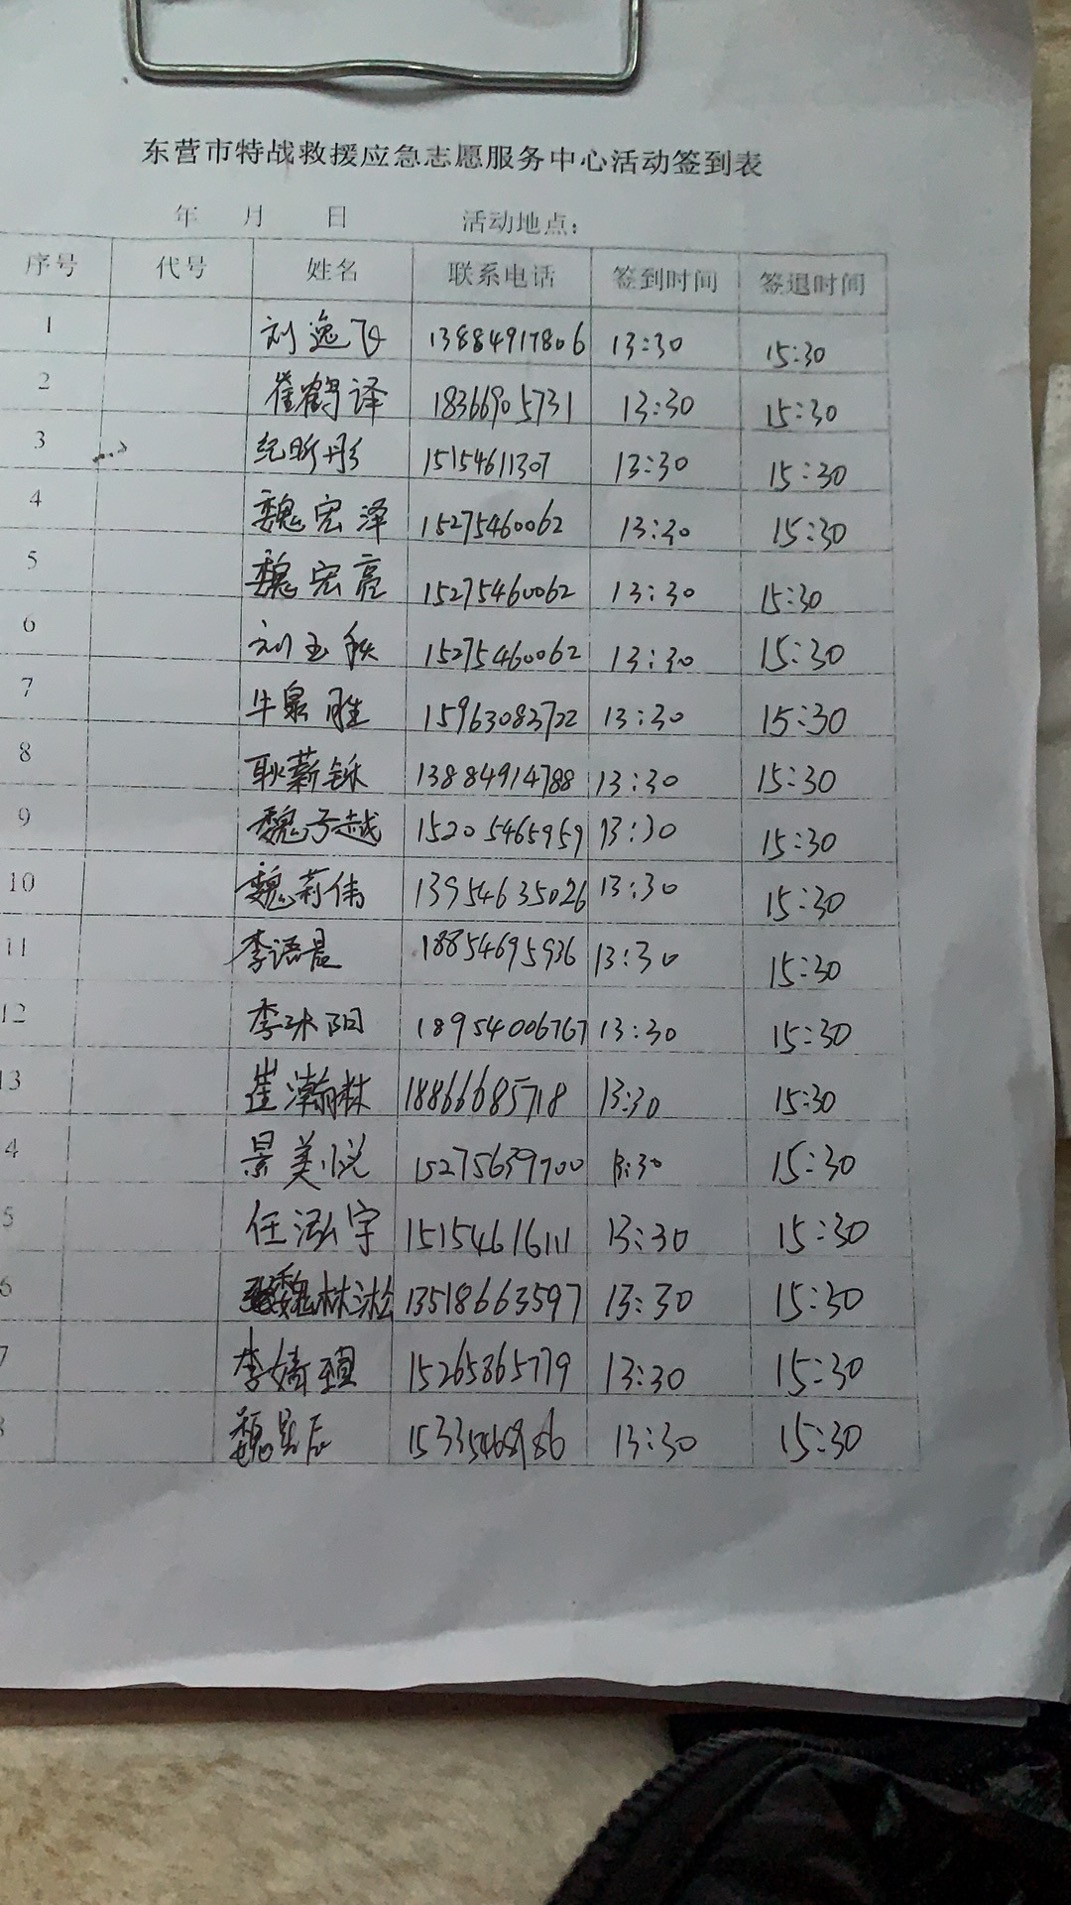 东营市特战救援应急志愿服务中心活动签到表
年 月 日 活动地点:
序号 代号 姓名 联系电话 签到时间 签退时间
1 刘逸飞 13884917806 13:30 15:30
2 崔鹤译 18366905731 13:30 15:30
3 纪昕彤 15154611307 13:30 15:30
4 魏宏泽 15275460062 13:30 15:30
5 魏宏亮 15275460062 13:30 15:30
6 刘玉秋 15275460062 13:30 15:30
7 牛泉胜 15963083722 13:30 15:30
8 耿薪铄 13884914788 13:30 15:30
9 魏子越 15205465959 13:30 15:30
10 魏莉伟 13954635026 13:30 15:30
11 李语晨 18854695936 13:30 15:30
12 李沐阳 18954006767 13:30 15:30
13 崔瀚林 18866685718 13:30 15:30
4 景美悦 15275639700 13:30 15:30
5 任泓宇 15154616111 13:30 15:30
6 魏林淞 13518663597 13:30 15:30
7 李婧瑄 15265865779 13:30 15:30
魏 13:30 15:30